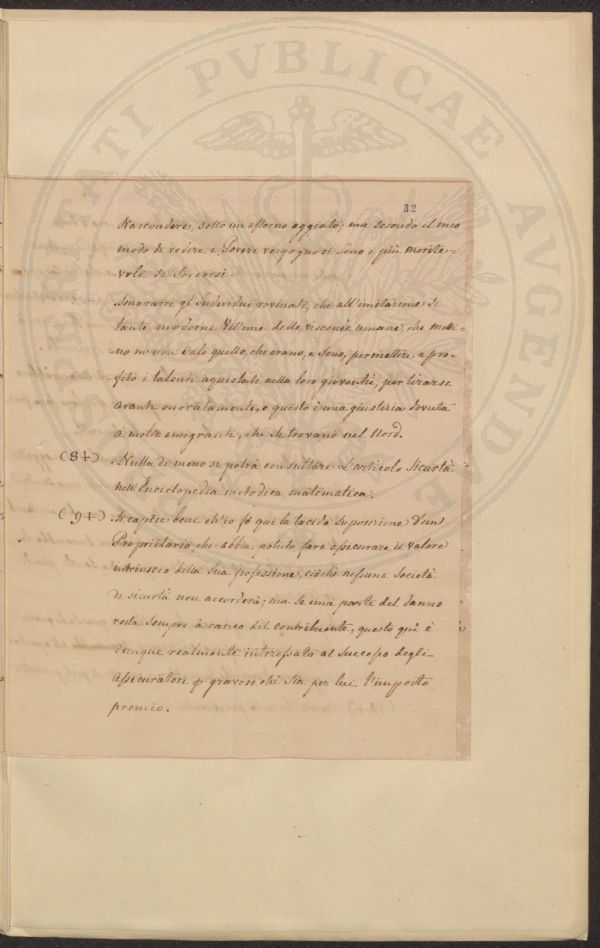 PROSPERITATI PVBLICAE AVGENDAE
32
Nascondere, sotto un esterno aggiato; ma secondo il mio
modo di vedere i Poveri vergognosi sono i più merite-
vole di Soccorsi
Onorarci gl'Individui rovinati, che all'imitazione di
tante moderne Vittime delle vicende umane, che metti-
no in non Calo quello, che erano, e sono, per mettere a pro-
fitto i talenti aquistati nella loro gioventù, per tirarsi
avanti onoratamente, e questo è una giustizia dovuta
à molti emigranti, che si trovano nel Nord.
(48) Nulla di meno si potrà consultare l'articolo Sicurtà
nell'Enciclopedia metodica matematica.
Si capisce bene ch'io fò qui la tacita suposizione d'un
Proprietario, che abbia potuto fare assicurare il valore
intrinseco della Sua professione, ciòche nessuna Società
di sicurtà non accorderà; ma se una parte del danno
resta sempre à carico del contribuente, questo qui è
dunque realmente interessato al Successo degli
Assicuratori p gravoso che sia per lui l'imposto
premio.